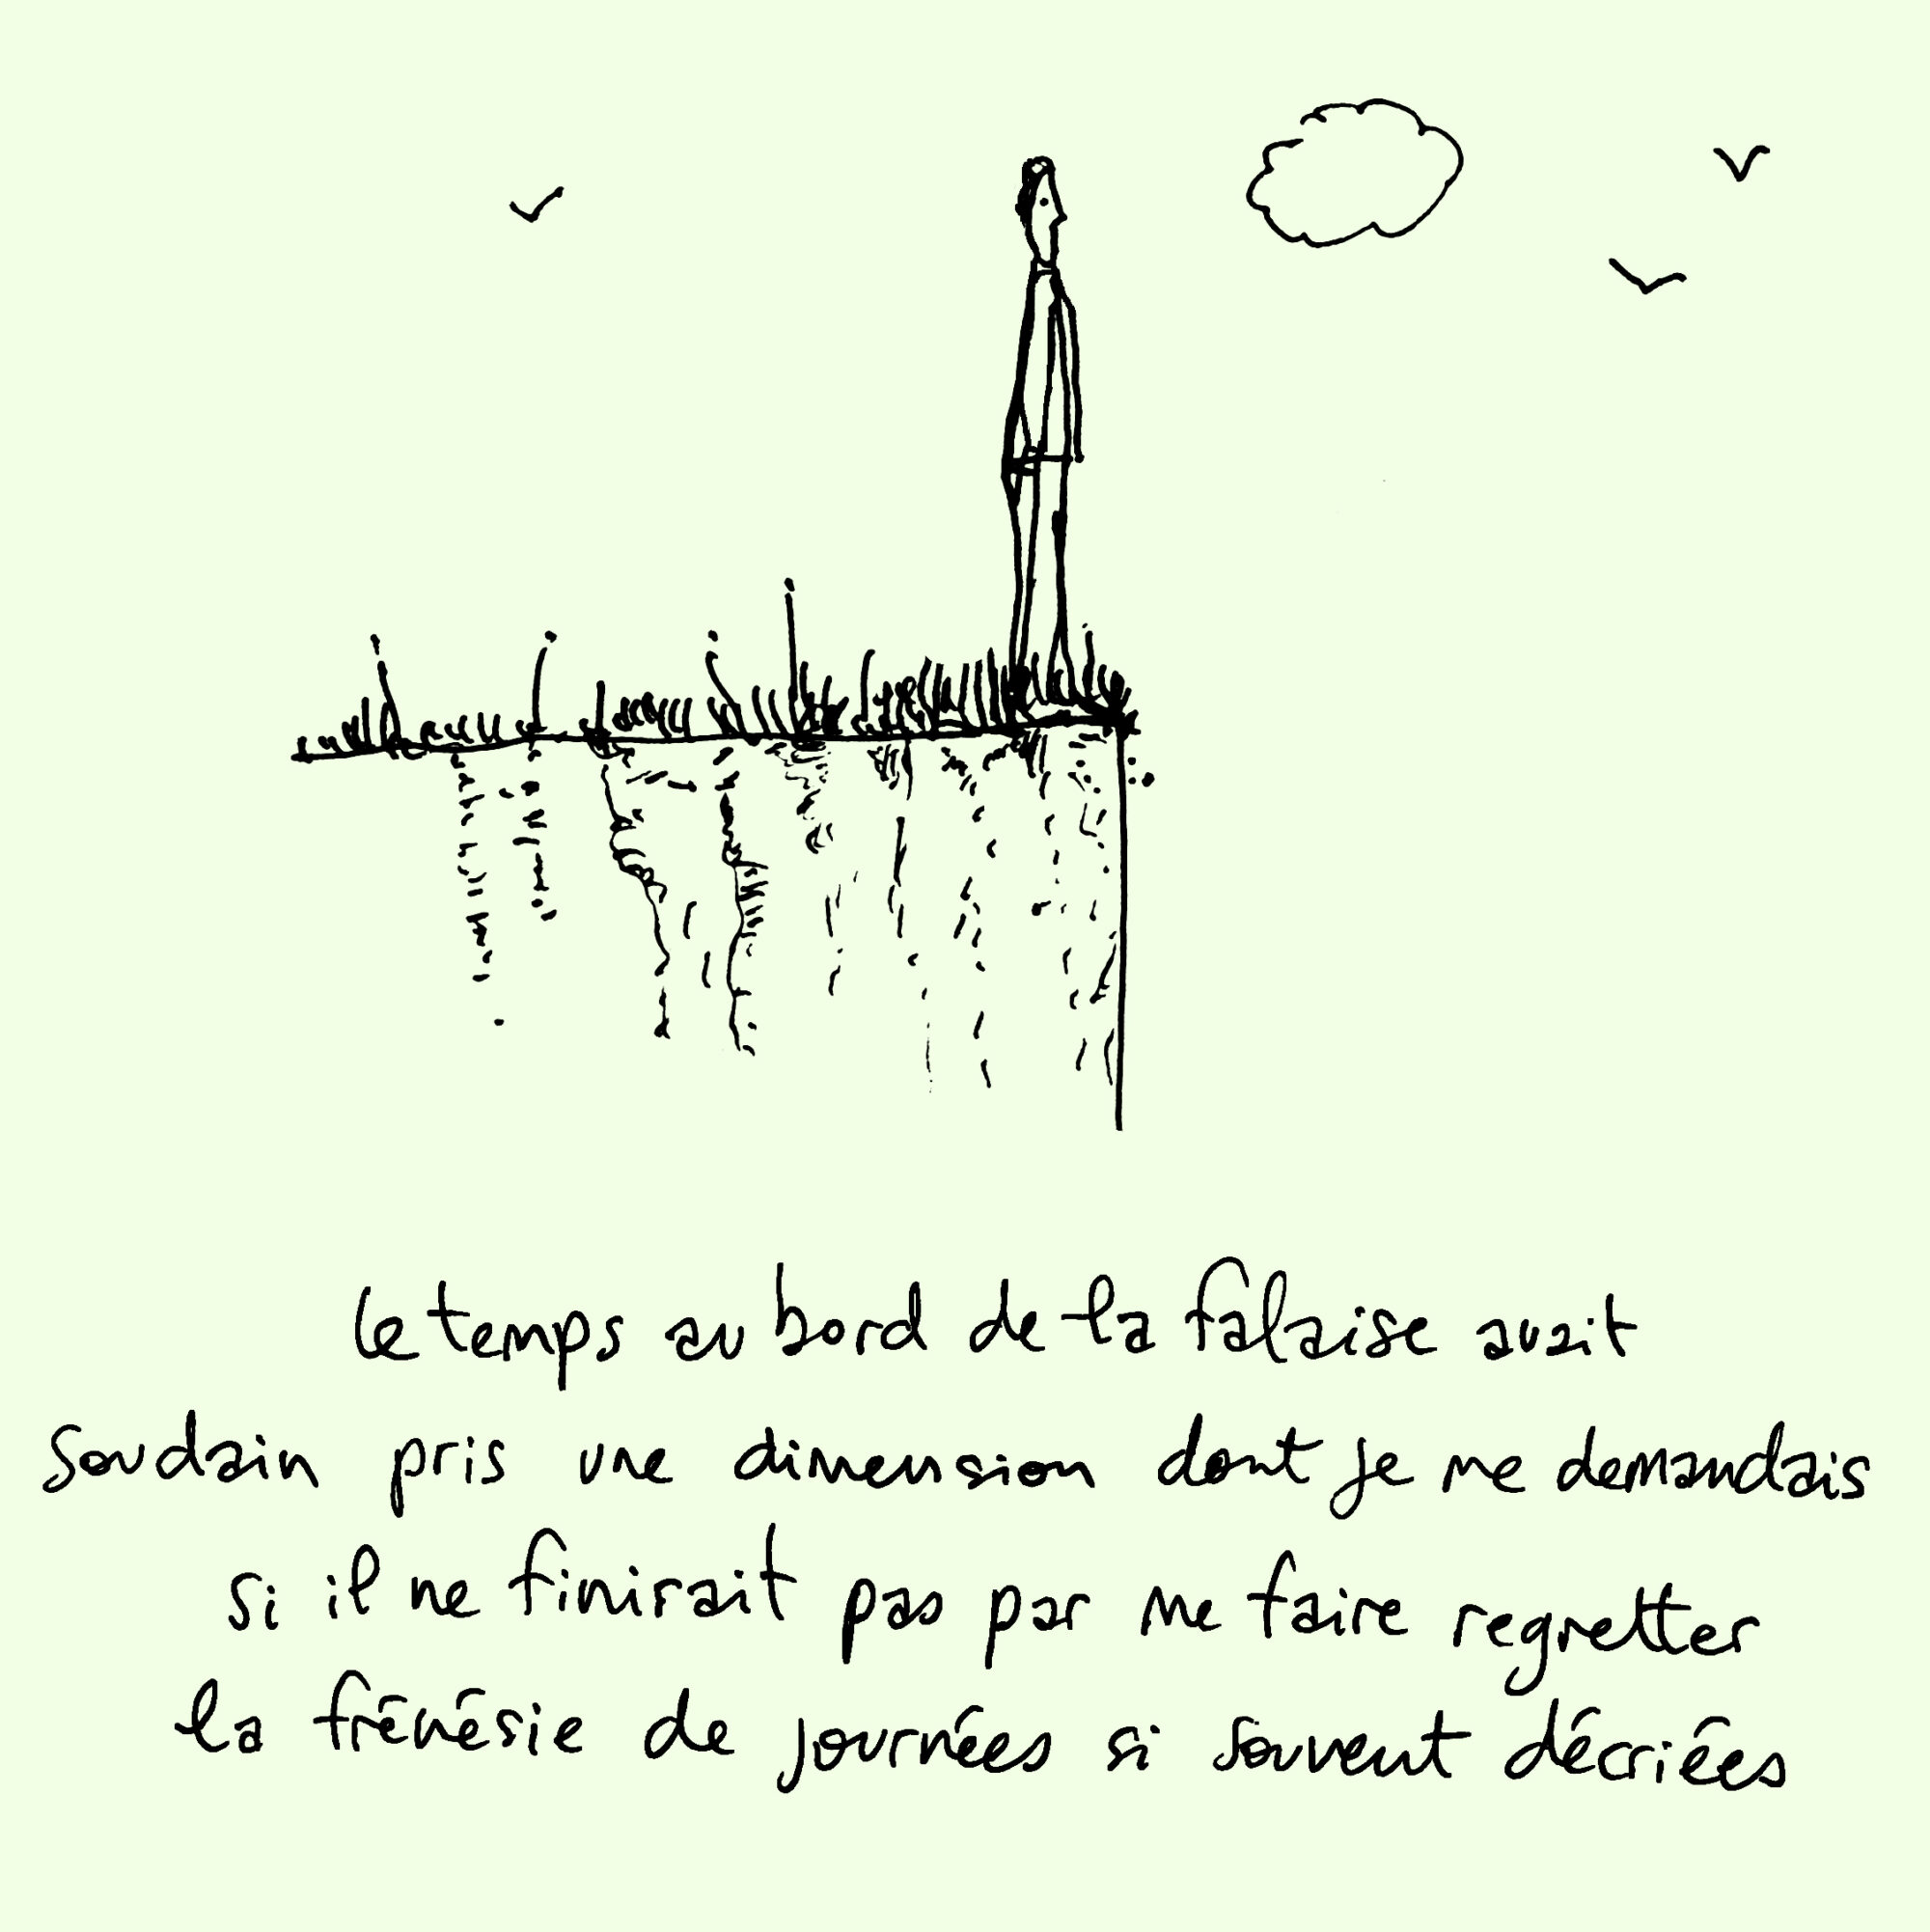 le temps au bord de la falaise avait
soudain pris une dimension dont je me demandais
si il ne finirait pas par me faire regretter
la frénésie de journées si souvent décriées